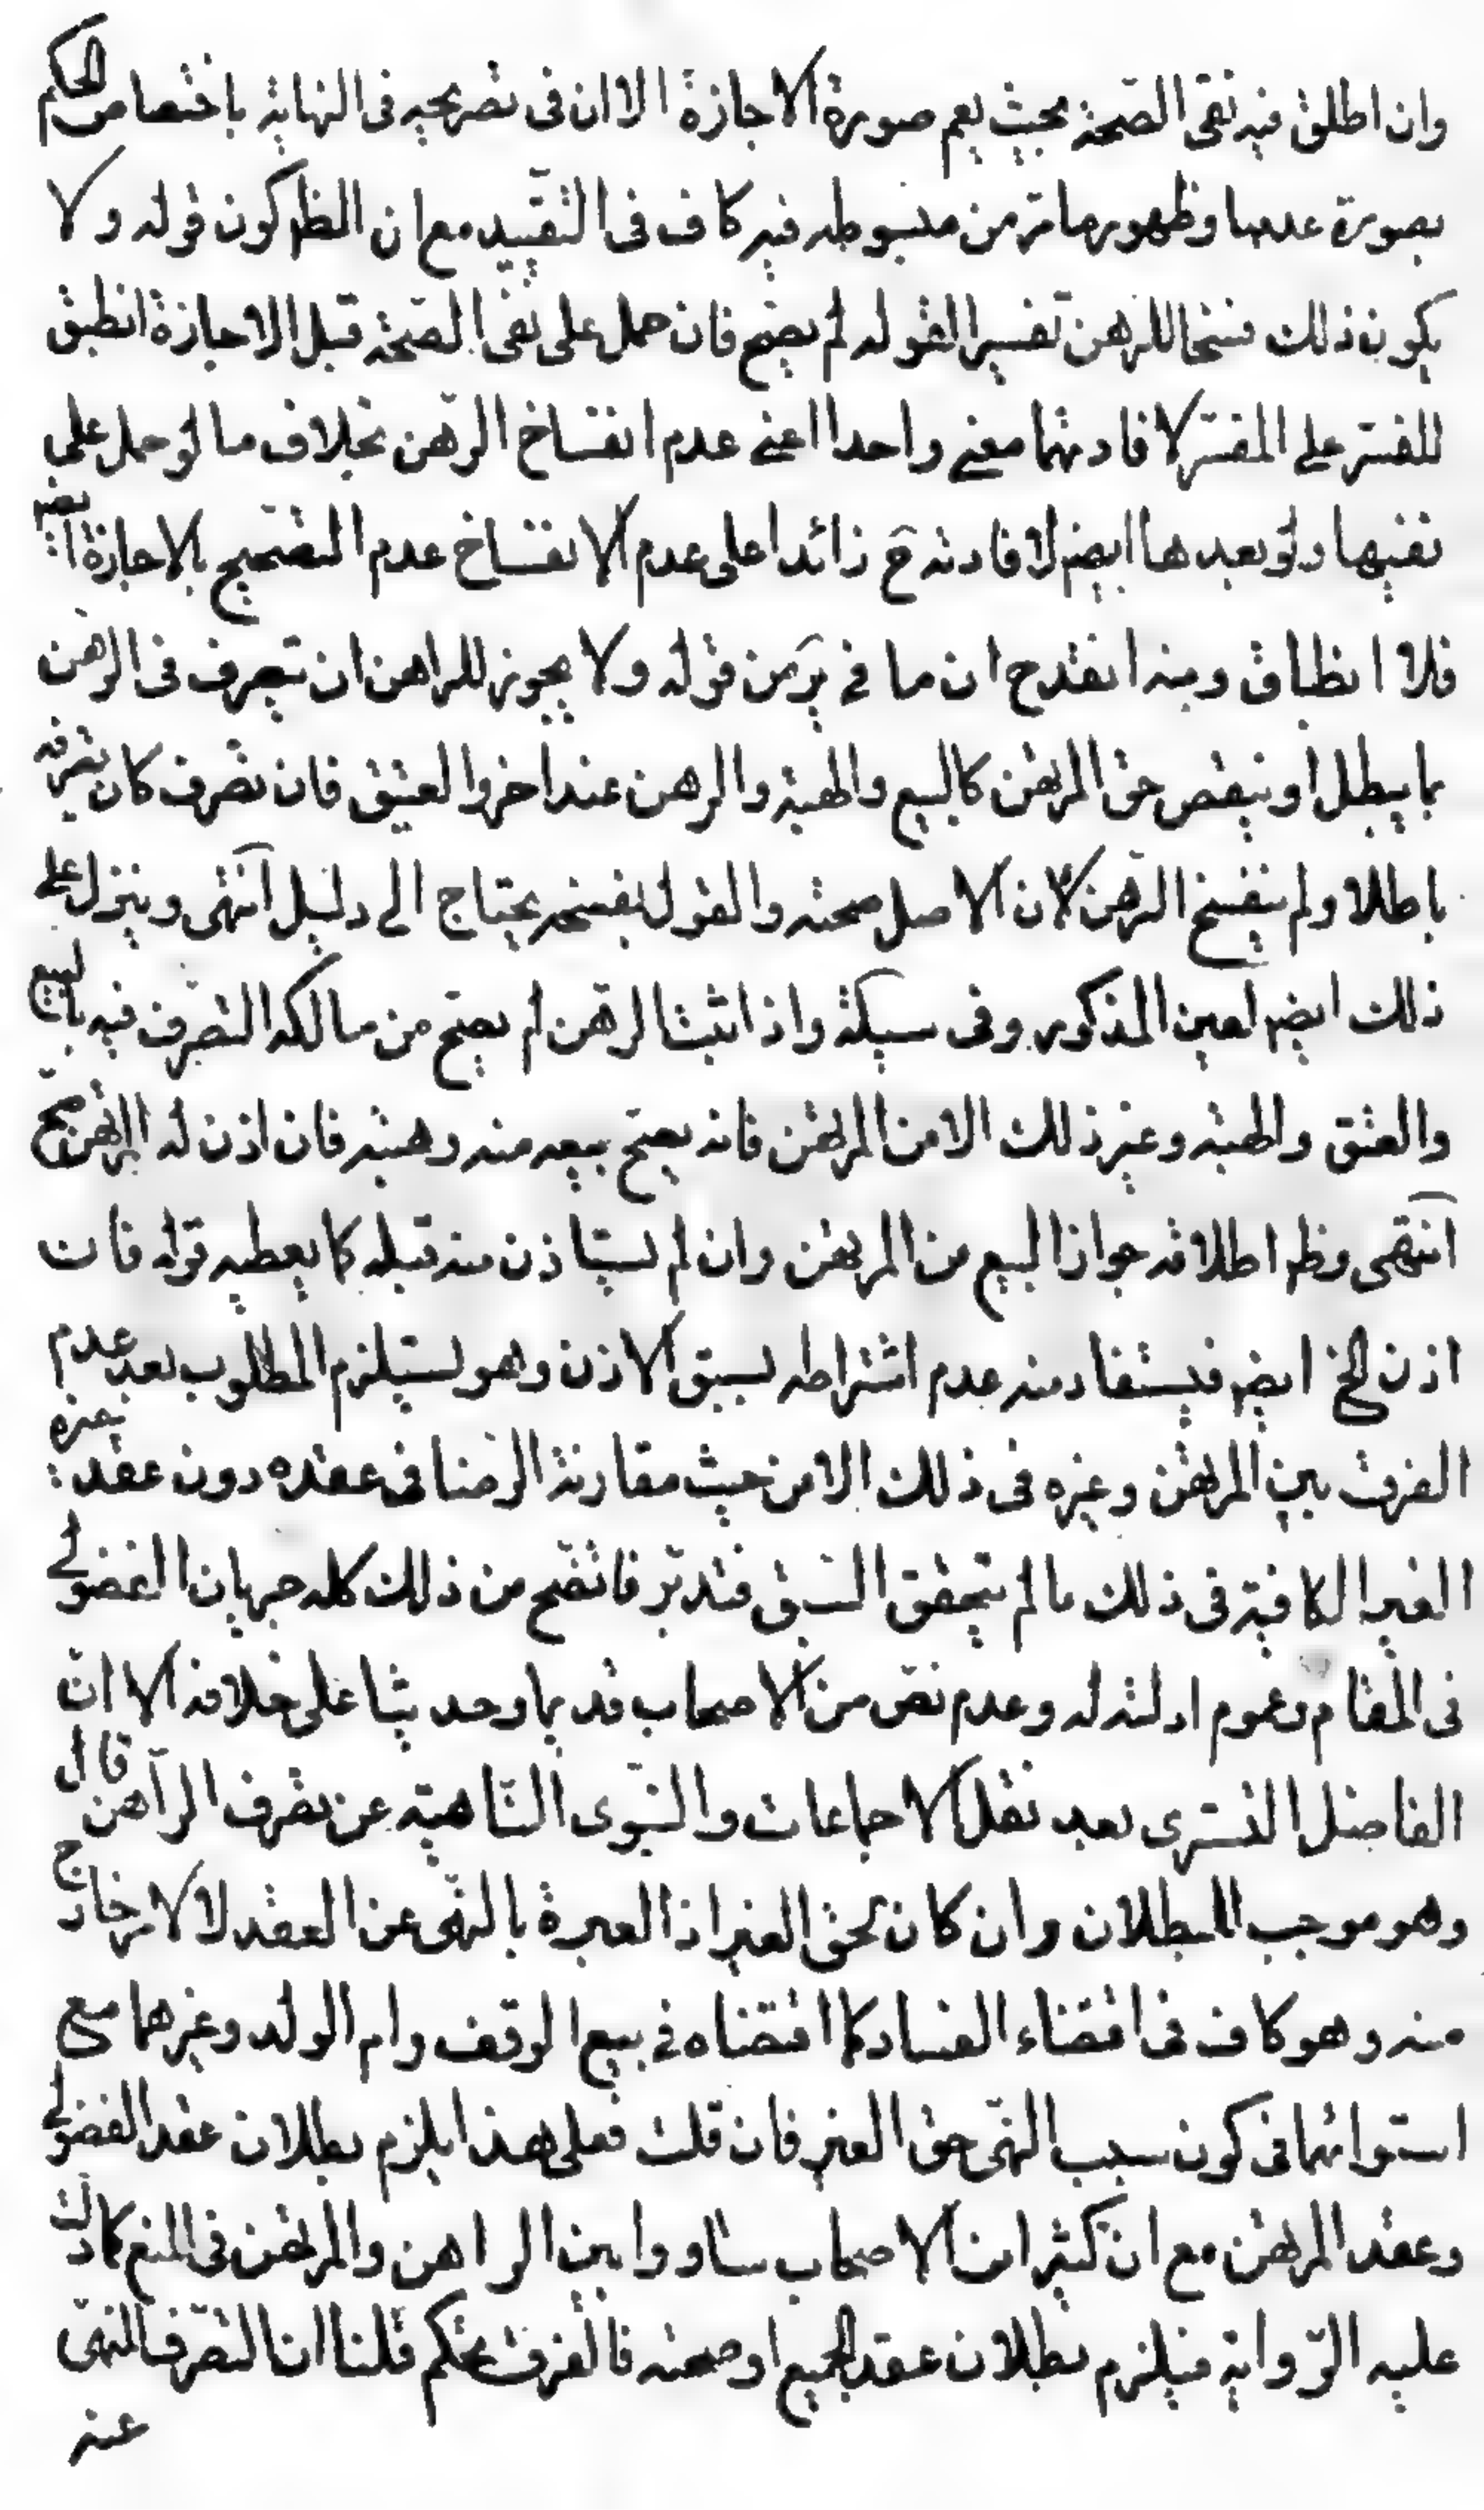 وان اطلق فيه نفى الصحة بحيث يعم صورة الاجازة الا ان فى تصريحه فى النهاية باختصاص الحكم
بصورة عدمها وظهور ما مر من مبسوطه فيه كاف فى التقييد مع ان الظ كون قوله ولا
يكون ذلك فسخا للرهن تفسيرا لقوله لم يصح فان حمل على نفى الصحة قبل الاجازة انطبق
المفسر على المفسر لافادتهما معنى واحدا اعنى عدم انفساخ الرهن بخلاف ما لو حمل على
نفيها ولو بعدها ايضا لافادته ح زائدا على عدم الانفساخ عدم التصحيح بالاجازة ايضا
فلا انطباق ومنه انقدح ان ما فى ئر من قوله ولا يجوز للراهن ان يتصرف فى الرهن
بما يبطل او ينقص حق المرتهن كالبيع والهبة والرهن عند اخر والعتق فان تصرف كان تصرفه
باطلا ولم ينفسخ الرهن لان الاصل صحته والقول بفسخه يحتاج الى دليل انتهى وينزل على
ذلك ايضا لعين المذكور وفى سبكة واذا ثبت الرهن لم يصح من مالكه التصرف فيه بالبيع
والعتق والهبة وغير ذلك الا من المرتهن فانه يصح بيعه منه وهبته فان اذن له المرتهن صح
انتهى وظ اطلاقه جواز البيع من المرتهن وان لم يستاذن منه قبله كما يعطيه قوله فان
اذن الخ ايضا فيستفاد منه عدم اشتراطه بسبق الاذن وهو يستلزم المطلوب بعد عدم
الفرق بين المرتهن وغيره فى ذلك الا من حيث مقارنة الرضا فى عقده دون عقد غيره
الغير الكافية فى ذلك ما لم يتحقق السبق فتدبر فاتضح من ذلك كله جريان الفضولى
فى المقام وعموم ادلته له وعدم نص من الاصحاب قديما وحديثا على خلافه الا ان
الفاضل التسترى بعد نقل الاجماعات والنبوى الناهية عن تصرف الراهن قال
وهو موجب للبطلان وان كان لحق الغير اذ العبرة بالنهى عن العقد لا لامر خارج
منه وهو كاف فى اقتضاء الفساد كما اقتضاه فى بيع الوقف وام الولد وغيرهما مع
استوائهما فى كون سبب النهى حق الغير فان قلت فعلى هذا يلزم بطلان عقد الفضولى
وعقد المرتهن مع ان كثيرا من الاصحاب ساووا بين الراهن والمرتهن فى المنع كما دلت
عليه الرواية فيلزم بطلان عقد الجميع او صحته فالفرق تحكم قلنا ان التصرف المنهى
عنه